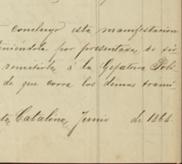 concluyo esta manifestacion
niendola por presentada, se sir
remitirla á la Gefatura Poli
de que corra los demas trami
ta Catalina, Junio de 186